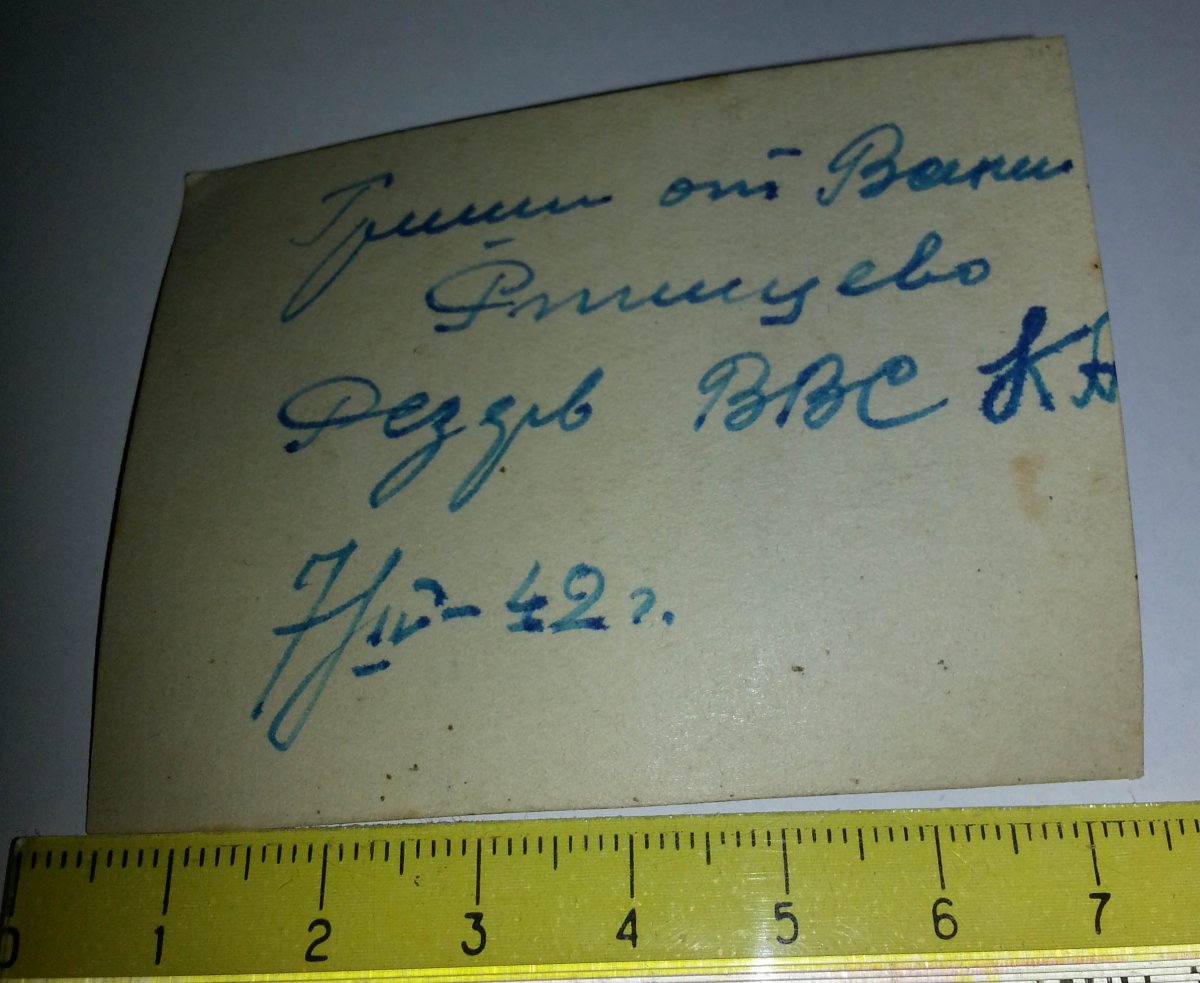 Гриши от Вани
Ртищево
Резерв ВВС КА
7/IV-42 г.
0 1 2 3 4 5 6 7